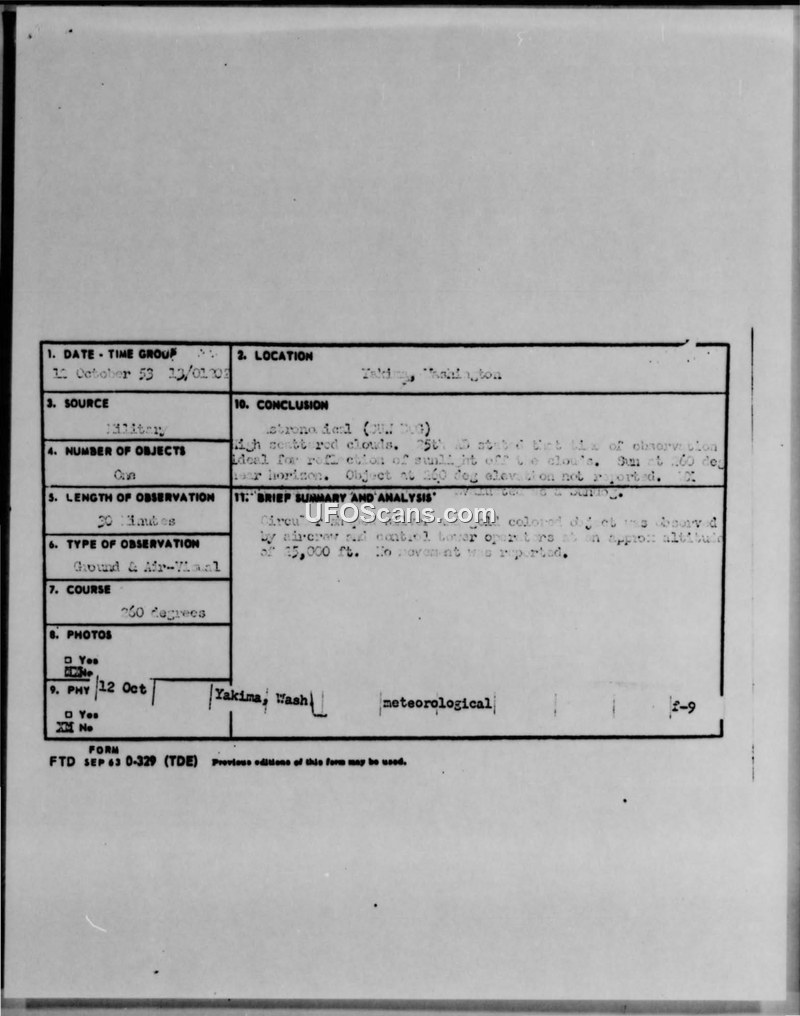 1. DATE - TIME GROUP
October 53
2. LOCATION
Yakima, Washington
3. SOURCE
Military
10. CONCLUSION
Astronomical (SUN DOG)
High scattered clouds. that time of observation
ideal for reflection of sunlight off the clouds. Sun at 260 deg
near horizon. Object at 260 deg elevation not reported.
4. NUMBER OF OBJECTS
One
5. LENGTH OF OBSERVATION
30 Minutes
11. BRIEF SUMMARY AND ANALYSIS
colored object was observed
by aircrew and control tower operators at an approx altitude
of 15,000 ft. No movement was reported.
UFOScans.com
6. TYPE OF OBSERVATION
Ground & Air-Visual
7. COURSE
260 degrees
8. PHOTOS
□ Yes
No
9. PHY
12 Oct
Yakima, Wash
meteorological
f-9
□ Yes
XX No
FORM
FTD SEP 63 0-329 (TDE) Previous editions of this form may be used.